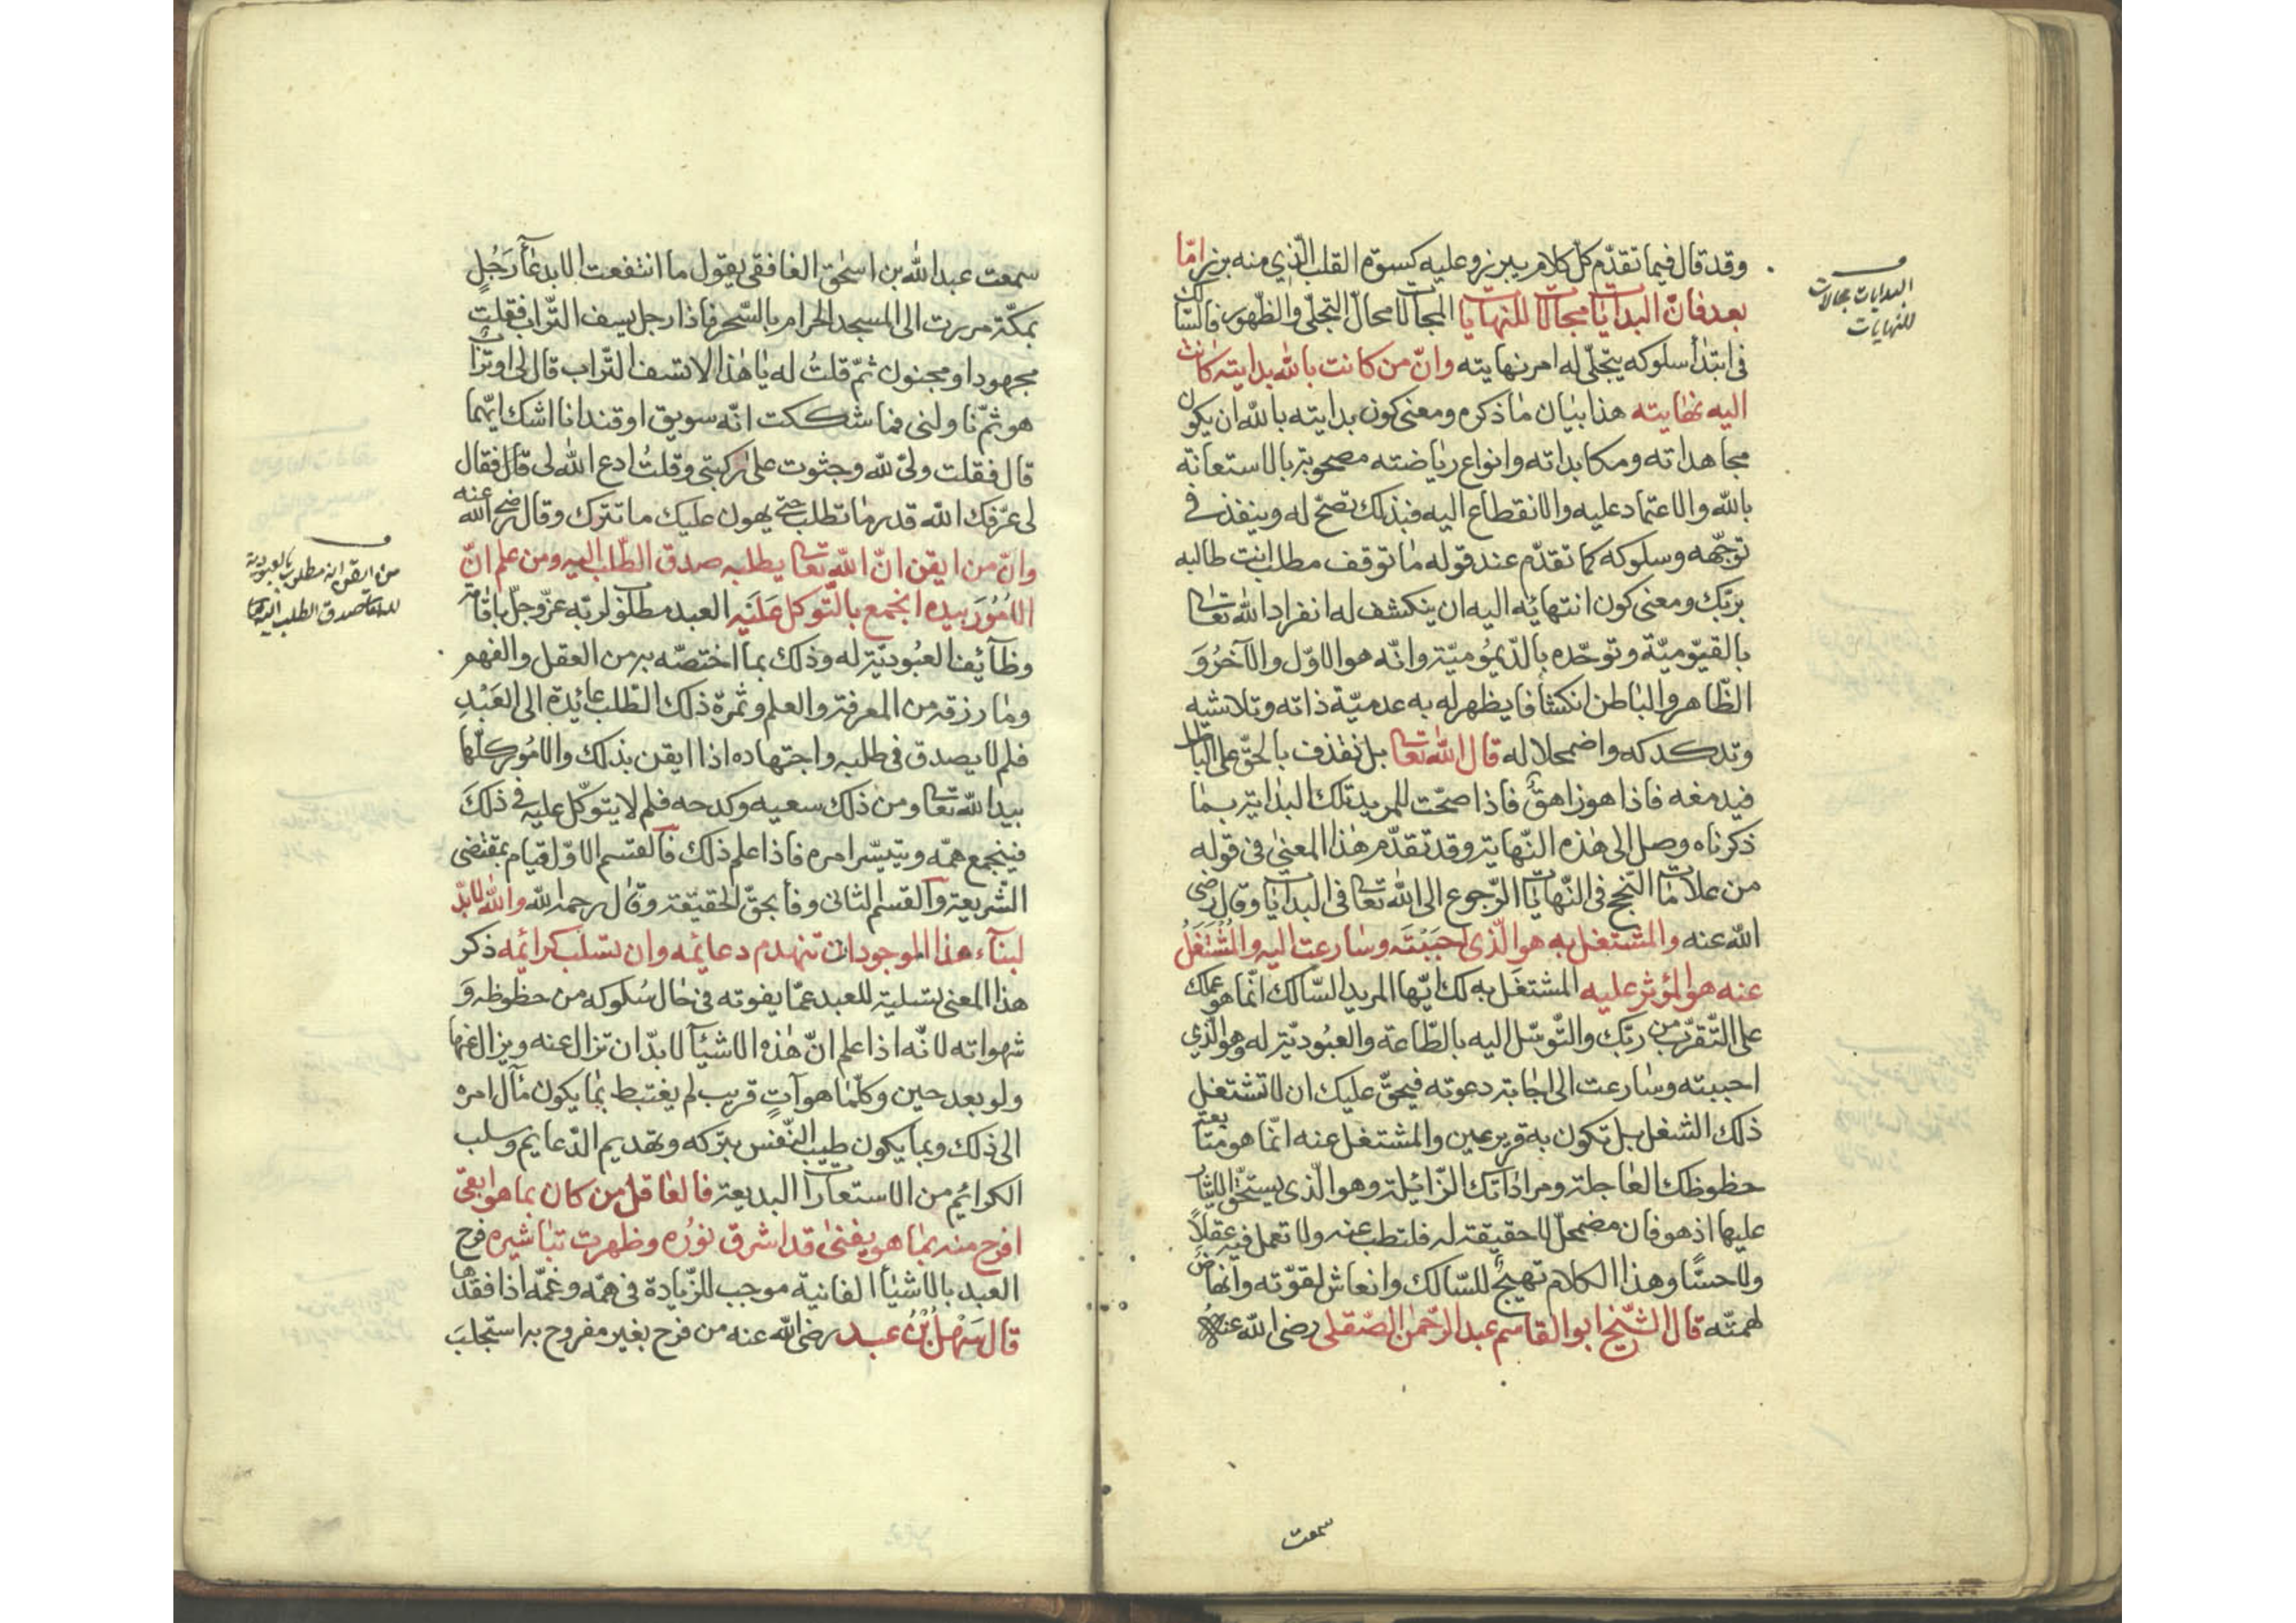 وقد قال فيما تقدّم كلّ كلام يبرز وعليه كسوة القلب الّذي منه برز امّا
بعد فانّ البدايات مجالات للنهايات المجالات محالّ التجلّى والظهور فالسّالك
فى ابتدأ سلوكه يتجلّى له امر نهايته وانّ من كانت بالله بدايته كانت
اليه نهايته هذا بيان ما ذكره ومعنى كون بدايته بالله ان يكون
مجاهداته ومكابداته وانواع رياضته مصحوبة بالاستعانة
بالله والاعتماد عليه والانقطاع اليه فبذلك تصحّ له وينفذ فى
توجّهه وسلوكه كما تقدّم عند قوله ما توقف مطلب انت طالبه
بربّك ومعنى كون انتهائه اليه ان ينكشف له انفراد الله تعالى
بالقيّوميّة وتوحّده بالدّيموميّة وانّه هو الاوّل والآخر و
الظّاهر والباطن انكشافا يظهر له به عدميّة ذاته وتلاشيه
وتدكدكه واضمحلاله قال الله تعالى بل نقذف بالحقّ على الباطل
فيدمغه فاذا هو زاهق فاذا صحّت للمريد تلك البداية بما
ذكرناه وصل الى هذه النّهاية وقد تقدّم هذا المعنى فى قوله
من علامات النّجح فى النّهايات الرّجوع الى الله تعالى فى البدايات وقال رضى
الله عنه والمشتغل به هو الّذى احببته وسارعت اليه والمشتغل
عنه هو المؤثر عليه المشتغل به لك ايّها المريد السّالك انّما هو عملك
على التّقرّب من ربّك والتّوسّل اليه بالطّاعة والعبوديّة له وهو الّذي
احببته وسارعت الى اجابة دعوته فيحقّ عليك ان لا تشتغل
ذلك الشغل بل تكون به قرير عين والمشتغل عنه انّما هو متابعة
حظوظك العاجلة ومراداتك الزّائلة وهو الّذى يستحقّ الايثار
عليها اذ هو فان مضمحلّ لا حقيقة له فلتطب عنه ولا تعمل فيه عقلاً
ولا حسّا وهذا الكلام تهييج للسّالك وانعاش لقوّته وانهاض
لهمّته قال الشّيخ ابو القاسم عبد الرّحمن الصّقلى رضى الله عنه
سمعت
البدايات مجالات
للنهايات
سمعت عبد الله بن اسحق الغافقى يقول ما انتفعت الا بدعأ رجل
بمكّة مررت الى المسجد الحرام بالسّحر فاذا رجل يسف التّراب فقلت
مجهود او مجنون ثمّ قلت له يا هذا لا تسف التّراب قال لى او تراب
هو ثمّ ناولنى فما شككت انّه سويق او قند انا اشك ايّهما
قال فقلت ولىّ لله وجثوت على ركبتى وقلت ادع الله لى قال فقال
لى عرّفك الله قدر ما تطلب حتى يهون عليك ما تترك وقال رضى الله عنه
وانّ من ايقن انّ الله تعالى يطلبه صدق الطّلب اليه ومن علم انّ
الامور بيده انجمع بالتّوكل عليه العبد مطلوب لربّه عزّ وجلّ باقامة
وظائف العبوديّة له وذلك بما اختصّه به من العقل والفهم
وما رزقه من المعرفة والعلم وثمرة ذلك الطّلب عائدة الى العبد
فلم لا يصدق فى طلبه واجتهاده اذا ايقن بذلك والامور كلّها
بيد الله تعالى ومن ذلك سعيه وكدحه فلم لا يتوكّل عليه فى ذلك
فينجمع همّه ويتيسّر امره فاذا علم ذلك فالقسم الاوّل قيام بمقتضى
الشّريعة والقسم الثانى وفأ بحقّ الحقيقة وقال رحمه الله وانّه لا بدّ
لبنآء هذا الموجود ان تنهدم دعائمه وان تسلب كرائمه ذكر
هذا المعنى تسلية للعبد عمّا يفوته فى حال سلوكه من حظوظه و
شهواته لانّه اذا علم انّ هذه الاشيأ لا بدّ ان تزال عنه ويزال عنها
ولو بعد حين وكلّما هو آت قريب لم يغتبط بما يكون مآل امره
الى ذلك وبما يكون طيب النّفس بتركه وتهديم الدّعايم وسلب
الكرائم من الاستعارات البديعة فالعاقل من كان بما هو ابقى
افرح منه بما هو يفنى قد اشرق نوره وظهرت تباشيره فرح
العبد بالاشيأ الفانية موجب للزّيادة فى همّه وغمّه اذا فقدها
قال سهل بن عبد رضى الله عنه من فرح بغير مفروح به استجلب
من ايقن انه مطلوب بالعبودية
صدق الطلب اليه